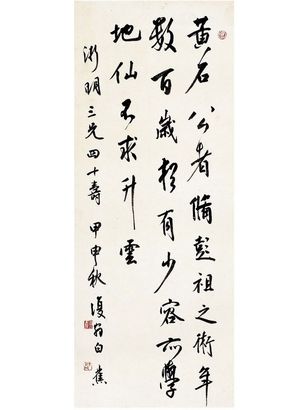 黄石公者脩彭祖之術年
數百歲猶有少容亦學
地仙不求升雲
三兄四十壽 甲申秋 復翁白蕉